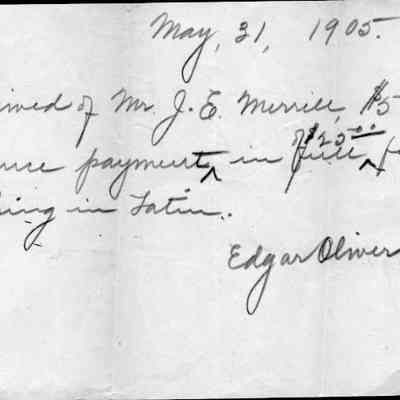 May, 31, 1905.
ived of Mr. J. E. Merrill, $5
$25.00
payment, in full, f
ing in Latin.
Edgar Oliver